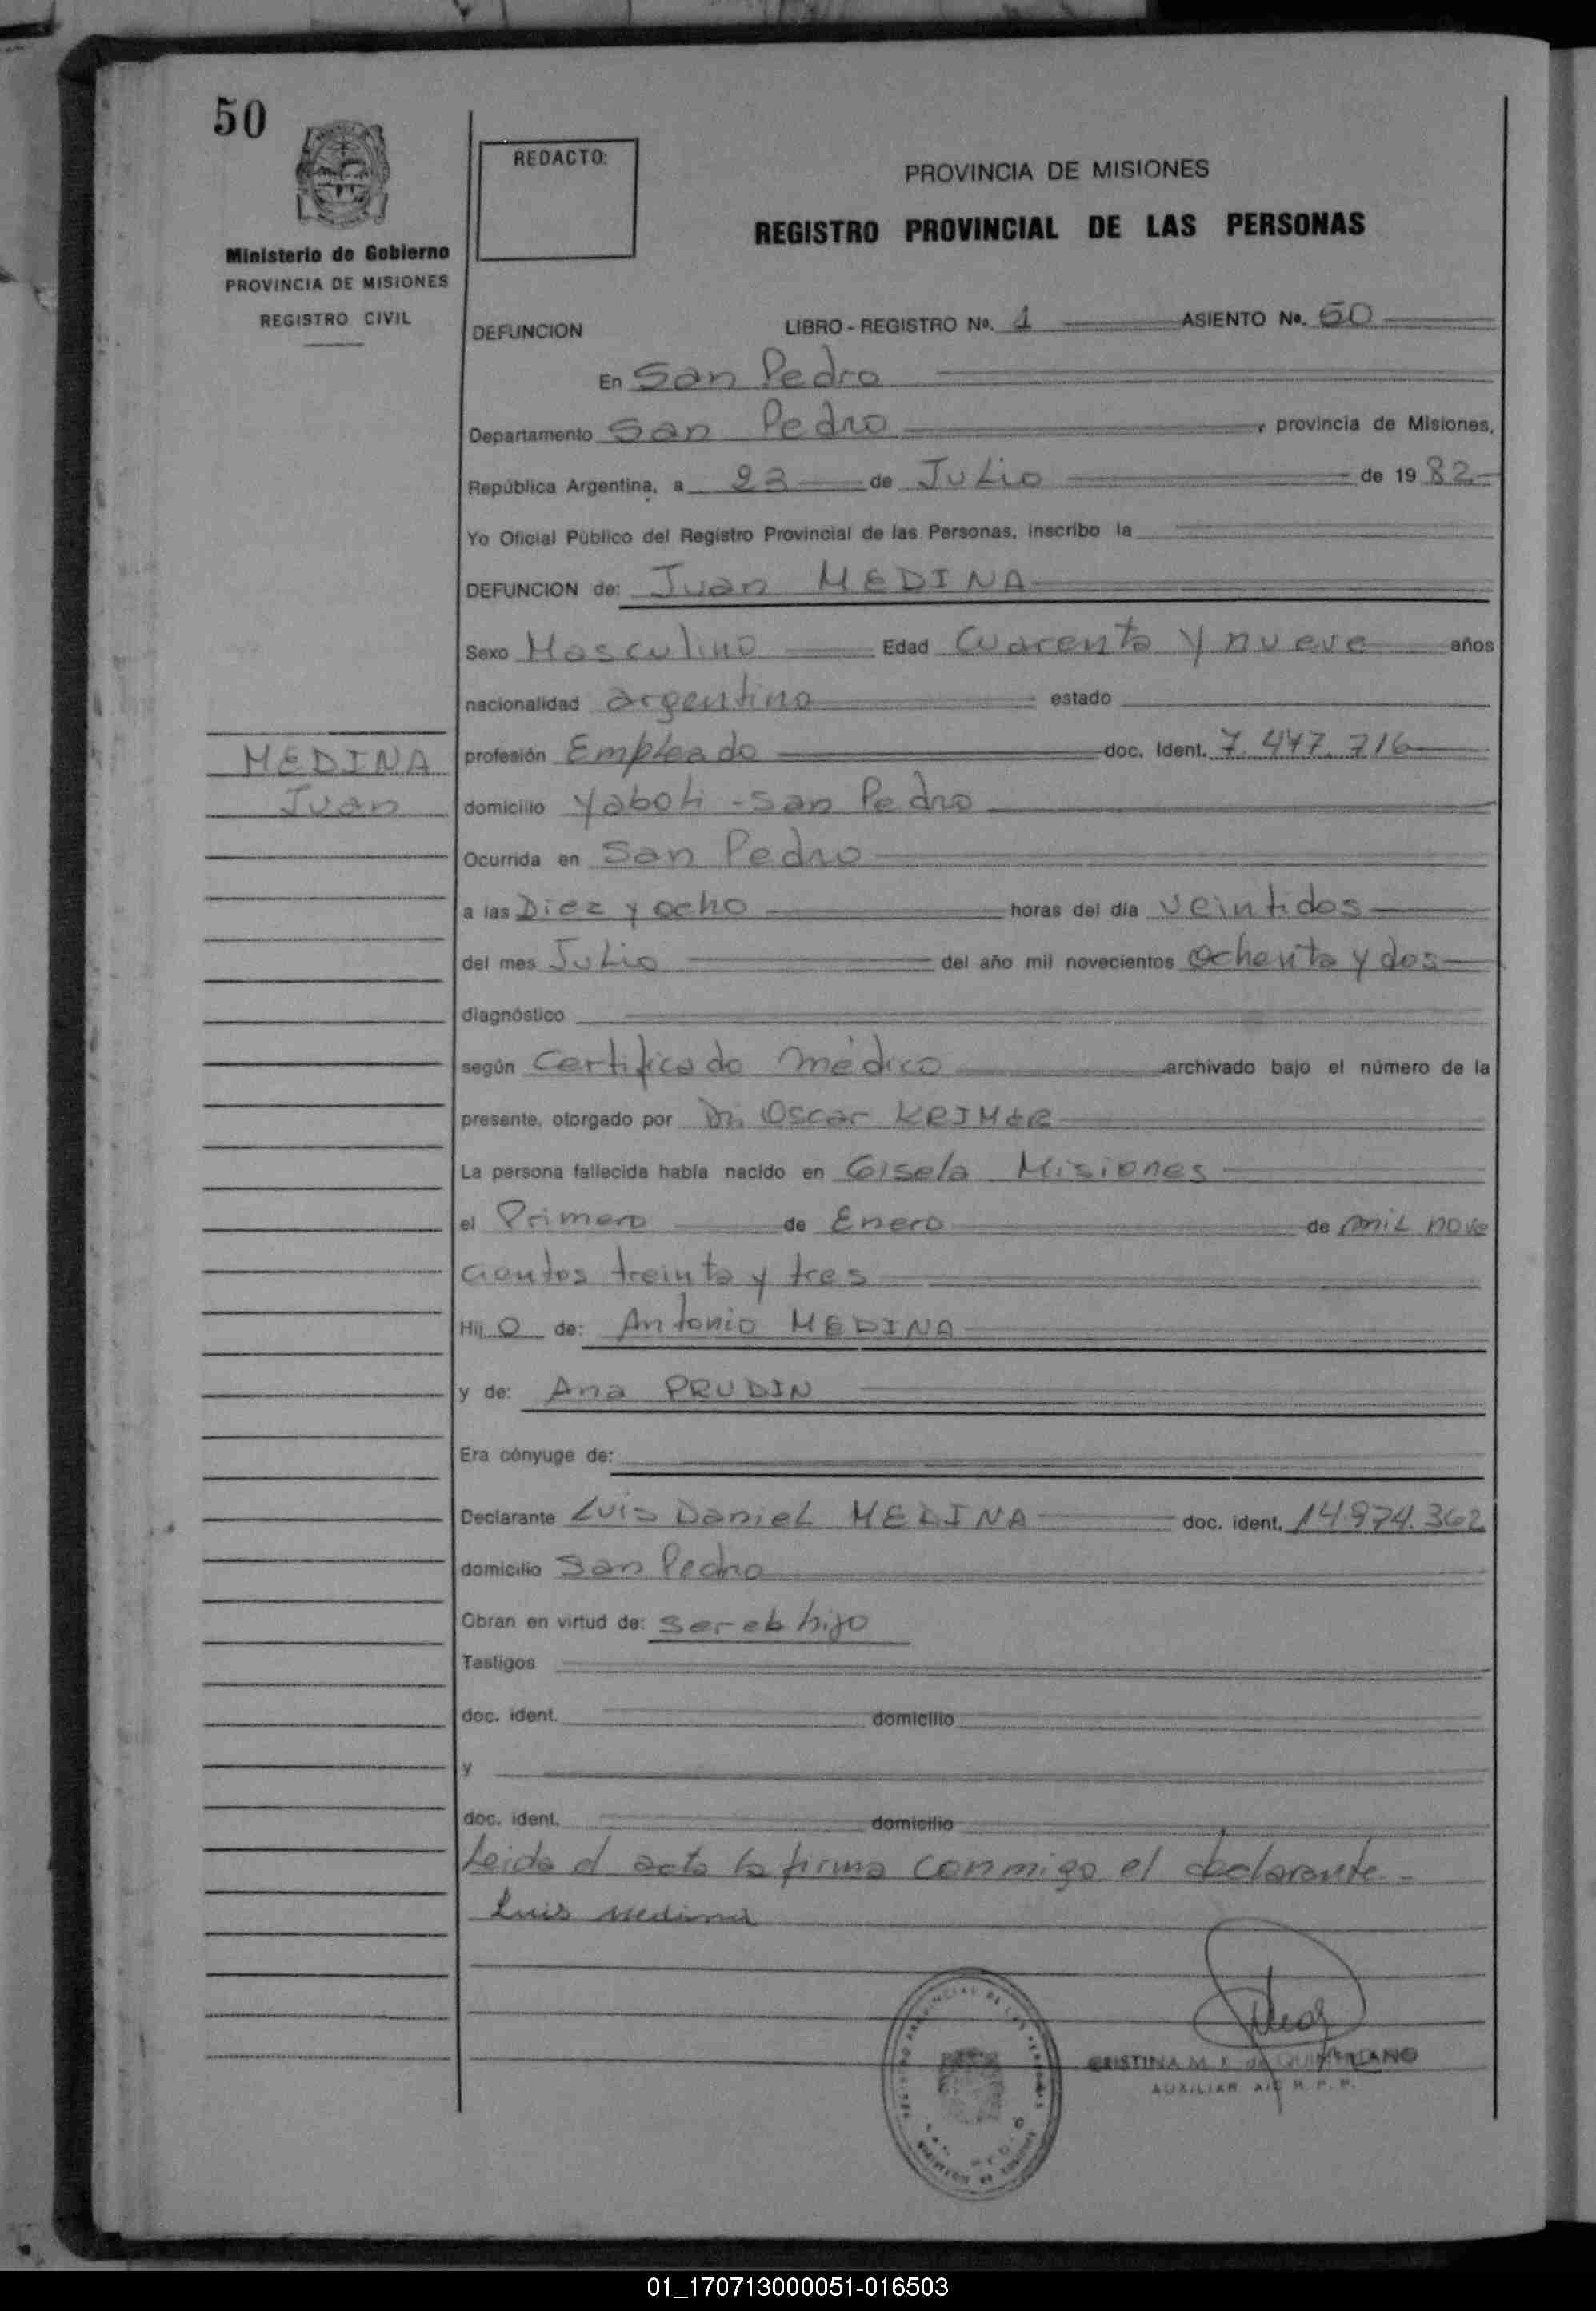 50
REDACTO:
PROVINCIA DE MISIONES
REGISTRO PROVINCIAL DE LAS PERSONAS
Ministerio de Gobierno
PROVINCIA DE MISIONES
REGISTRO CIVIL
DEFUNCION LIBRO - REGISTRO No. 1 ASIENTO No. 50
En San Pedro
Departamento San Pedro, provincia de Misiones,
República Argentina, a 23 de Julio de 1982
Yo Oficial Público del Registro Provincial de las Personas, inscribo la
DEFUNCION de: Juan MEDINA
Sexo Masculino Edad Cuarenta y nueve años
nacionalidad argentina estado
MEDINA
Juan
profesión Empleado doc. Ident. 7.447.716
domicilio Yaboti - San Pedro
Ocurrida en San Pedro
a las Diez y ocho horas del día veintidos
del mes Julio del año mil novecientos ochenta y dos
diagnóstico
según Certificado médico archivado bajo el número de la
presente, otorgado por Dr. Oscar KRIMER
La persona fallecida había nacido en Gisela Misiones
el Primero de Enero de mil nove
cientos treinta y tres
Hij o de: Antonio MEDINA
y de: Ana PRUDIN
Era cónyuge de:
Declarante Luis Daniel MEDINA doc. ident. 14.974.362
domicilio San Pedro
Obran en virtud de: ser el hijo
Testigos
doc. ident. domicilio
y
doc. ident. domicilio
Leida el acta la firma conmigo el declarante.-
Luis Medina
CRISTINA M. K. de QUINTILIANO
AUXILIAR A/C R. P. P.
01_170713000051-016503